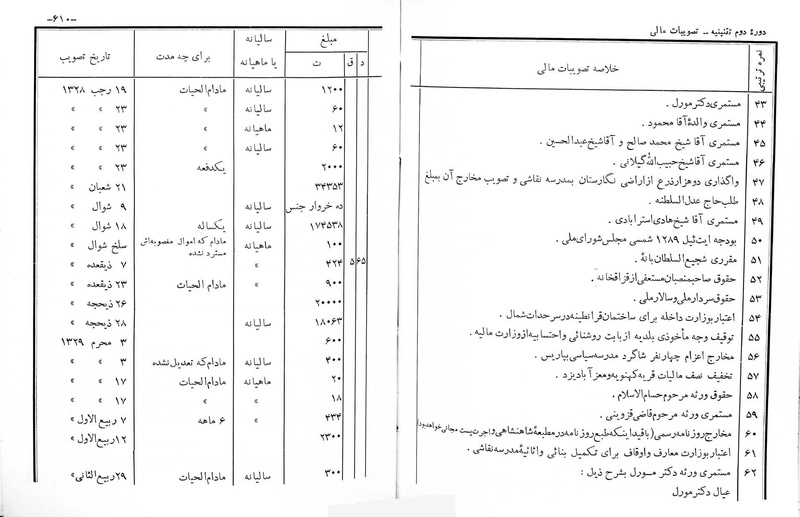 دورهٔ دوم تقنینیه ــ تصویبات مالی
نمره ترتیبی
خلاصه تصویبات مالی
۴۳ مستمری دکتر مورل .
۴۴ مستمری والدهٔ آقا محمود .
۴۵ مستمری آقا شیخ محمد صالح و آقا شیخ عبدالحسین .
۴۶ مستمری آقا شیخ حبیب الله گیلانی .
۴۷ واگذاری دوهزار ذرع از اراضی نگارستان بمدرسه نقاشی و تصویب مخارج آن بمبلغ
۴۸ طلب حاج عدل السلطنه .
۴۹ مستمری آقا شیخ هادی استرابادی .
۵۰ بودجه ایت ئیل ۱۲۸۹ شمسی مجلس شورای ملی .
۵۱ مقرری شجیع السلطان بانهٔ .
۵۲ حقوق صاحبمنصبان مستعفی از قزاقخانه .
۵۳ حقوق سردار ملی و سالار ملی .
۵۴ اعتبار بوزارت داخله برای ساختمان قرانطینه در سرحدات شمال .
۵۵ توقیف وجه مأخوذی بلدیه از بابت روشنائی و احتسابیه از وزارت مالیه .
۵۶ مخارج اعزام چهار نفر شاگرد مدرسه سیاسی بپاریس .
۵۷ تخفیف نصف مالیات قریه کهنویه و معز آباد یزد .
۵۸ حقوق ورثه مرحوم حسام الاسلام .
۵۹ مستمری ورثه مرحوم قاضی قزوینی .
۶۰ مخارج روزنامه رسمی (با قید اینکه طبع روزنامه در مطبعهٔ شاهنشاهی و اجرت پست مجانی خواهد بود)
۶۱ اعتبار بوزارت معارف و اوقاف برای تکمیل بنائی و اثاثیهٔ مدرسه نقاشی .
۶۲ مستمری ورثه دکتر مورل بشرح ذیل :
عیال دکتر مورل
ـ۶۱۰ـ
مبلغ
د ق ت
سالیانه یا ماهیانه
برای چه مدت
تاریخ تصویب
۱۲۰۰ سالیانه مادام الحیات ۱۹ رجب ۱۳۲۸
۶۰ سالیانه » ۲۳ » »
۱۲ ماهیانه » ۲۳ » »
۶۰ سالیانه » ۲۳ » »
۲۰۰۰ یکدفعه ۲۳ » »
۳۴۳۵۳ ۲۱ شعبان »
ده خروار جنس سالیانه ۹ شوال »
۱۷۴۵۳۸ سالیانه یکساله ۱۸ شوال »
۱۰۰ ماهیانه مادام که اموال مغصوبه‌اش مسترد نشده سلخ شوال »
۶۵ ۵ ۴۲۴ » ۷ ذیقعده »
۹۰۰ » مادام الحیات ۲۳ ذیقعده »
۲۰۰۰۰ ۲۶ ذیحجه »
۱۸۰۶۳ سالیانه ۲۸ ذیحجه »
۶۰۰ ۳ محرم ۱۳۲۹
۴۰۰ سالیانه مادام که تعدیل نشده ۳ » »
۲۰ ماهیانه مادام الحیات ۱۷ » »
۱۸ » » ۱۷ » »
۴۳۴ » ۶ ماهه ۷ ربیع الاول »
۲۳۰۰ ۱۲ ربیع الاول »
۳۰۰ سالیانه مادام الحیات ۲۹ ربیع الثانی »